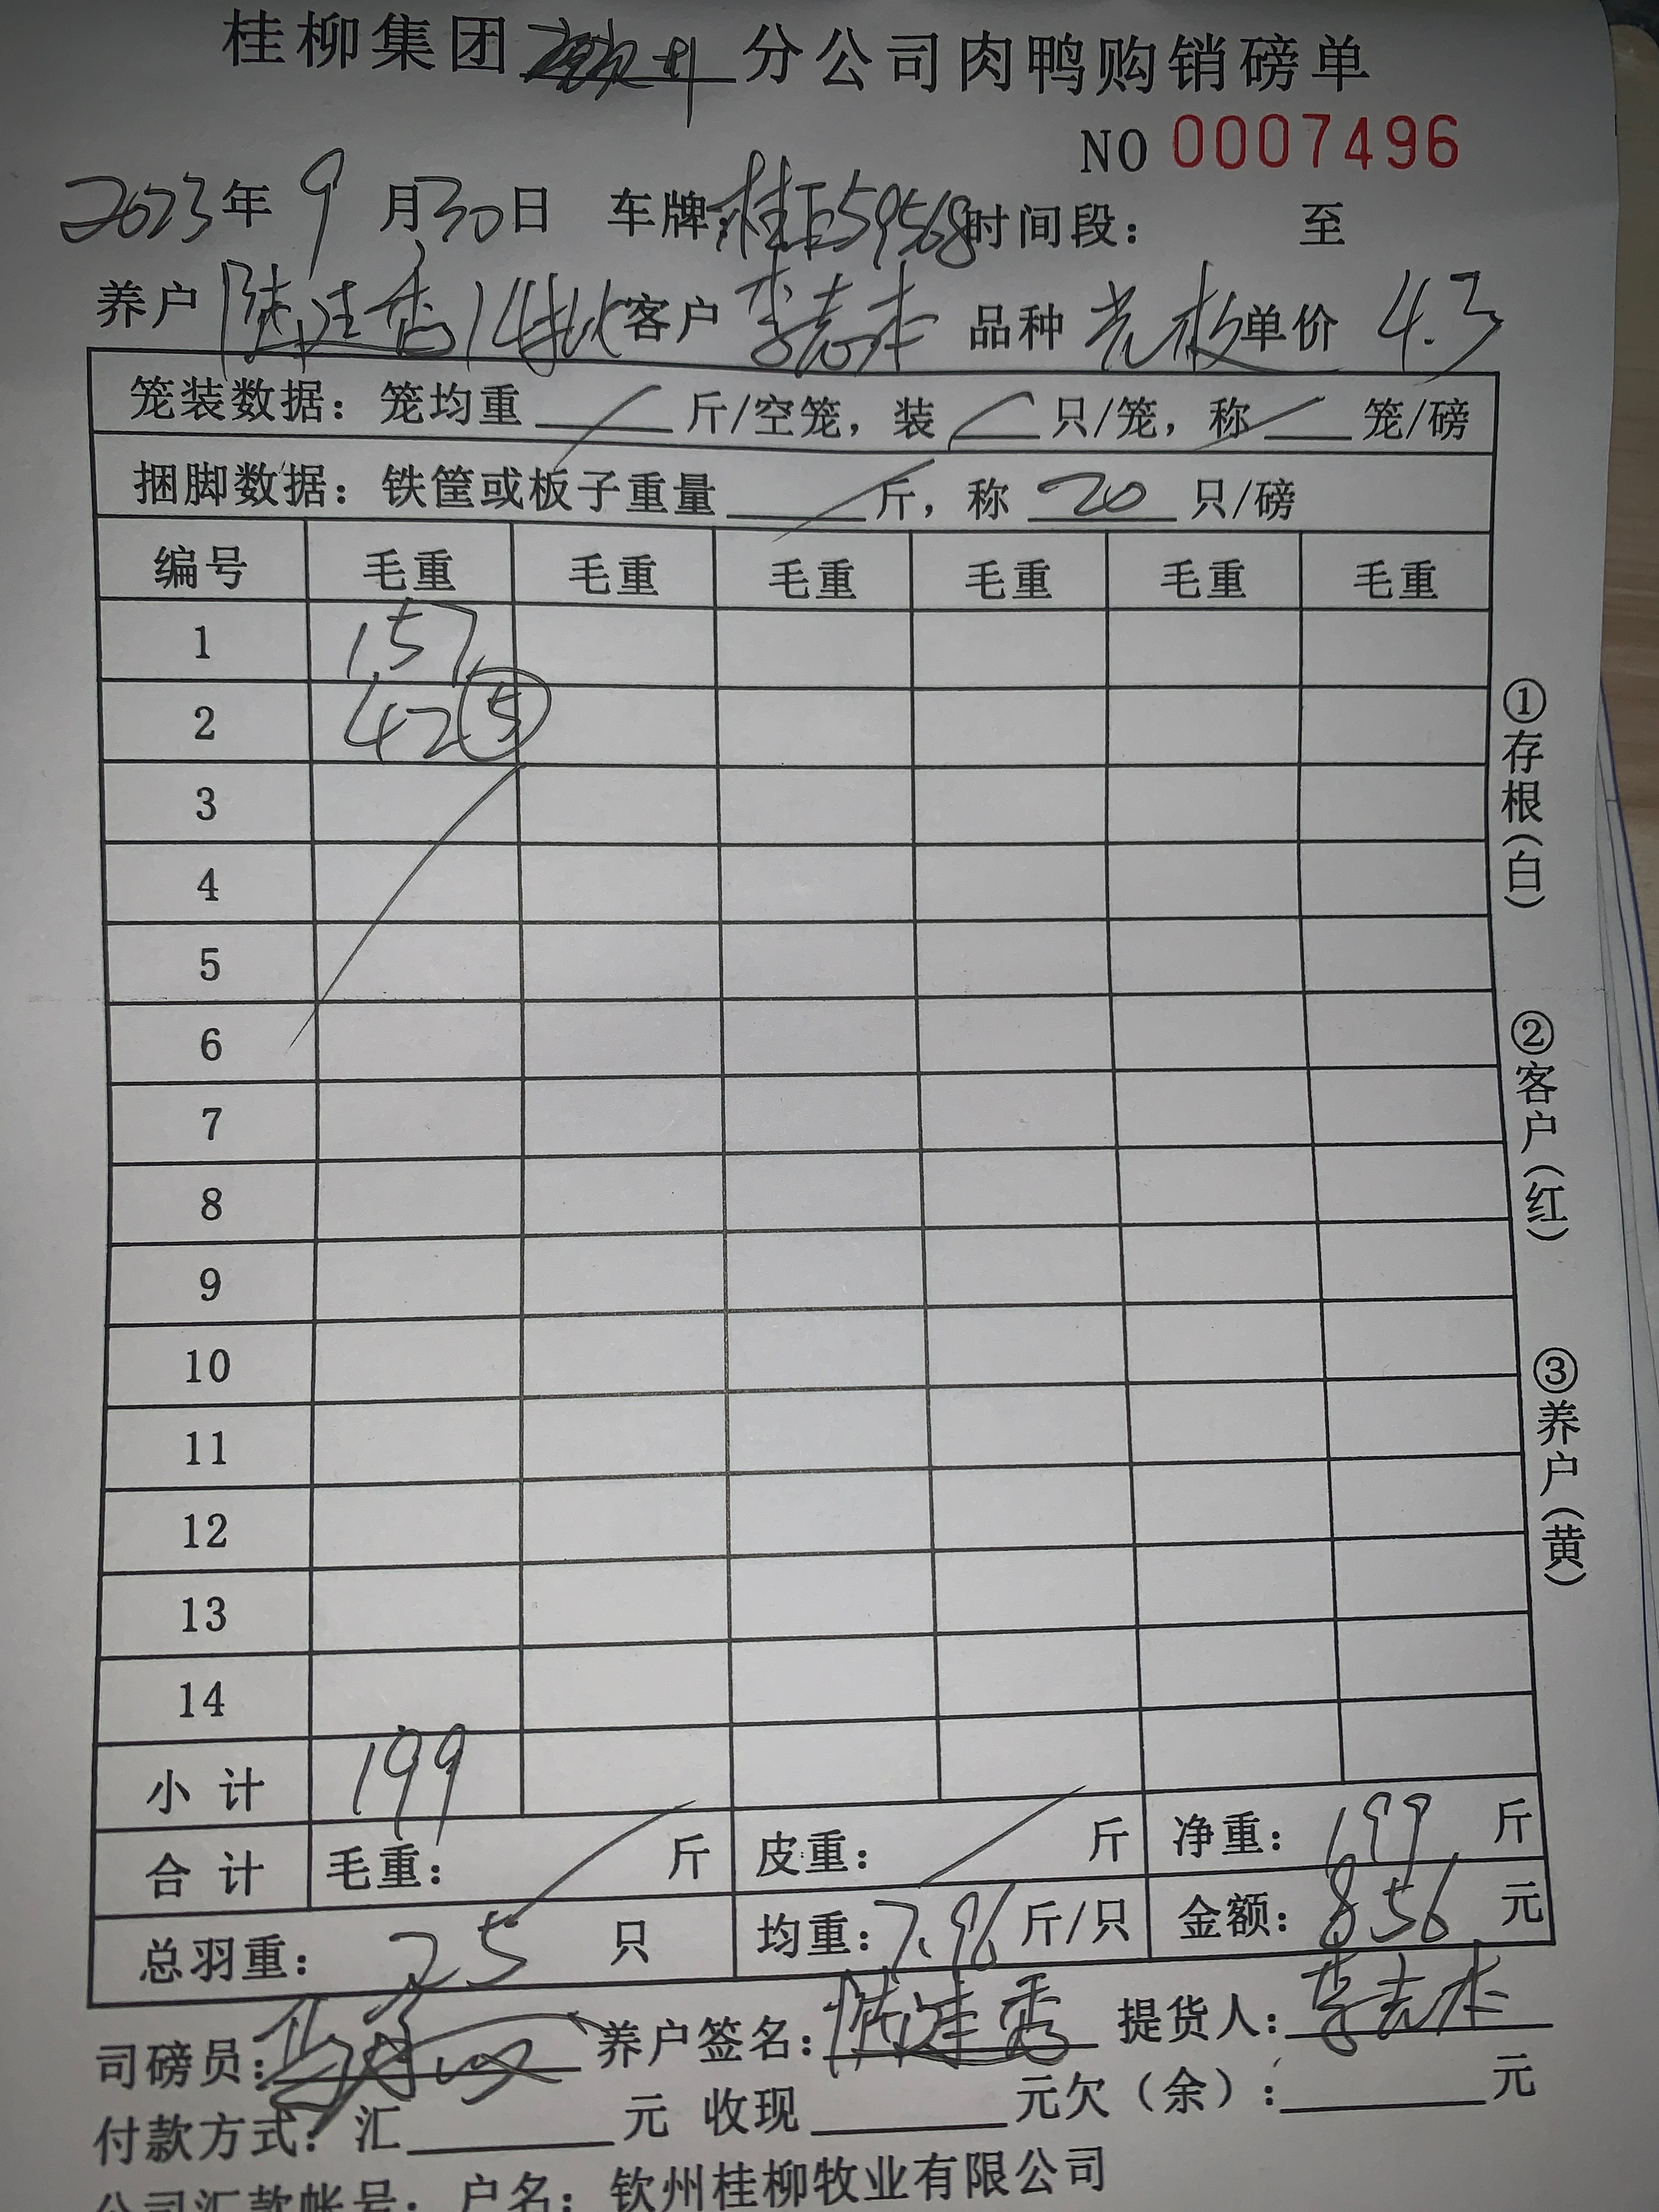 桂柳集团 分公司肉鸭购销磅单
NO 0007496
2023年 9 月30日 车牌:桂 59568时间段: 至
养户 陆 14批 客户 李志 品种 单价 4.3
笼装数据: 笼均重 斤/空笼, 装 只/笼, 称 笼/磅
捆脚数据: 铁筐或板子重量 斤, 称 20 只/磅
编号 毛重 毛重 毛重 毛重 毛重 毛重
1 157
2 42 5
3
4
5
6
7
8
9
10
11
12
13
14
小 计 199
合 计 毛重: 斤 皮重: 斤 净重: 199 斤
总羽重: 25 只 均重: 7.96 斤/只 金额: 856 元
司磅员: 养户签名: 陆 秀 提货人: 李志
付款方式: 汇 元 收现 元欠(余): 元
公司汇款帐号: 户名: 钦州桂柳牧业有限公司
①存根(白)
②客户(红)
③养户(黄)